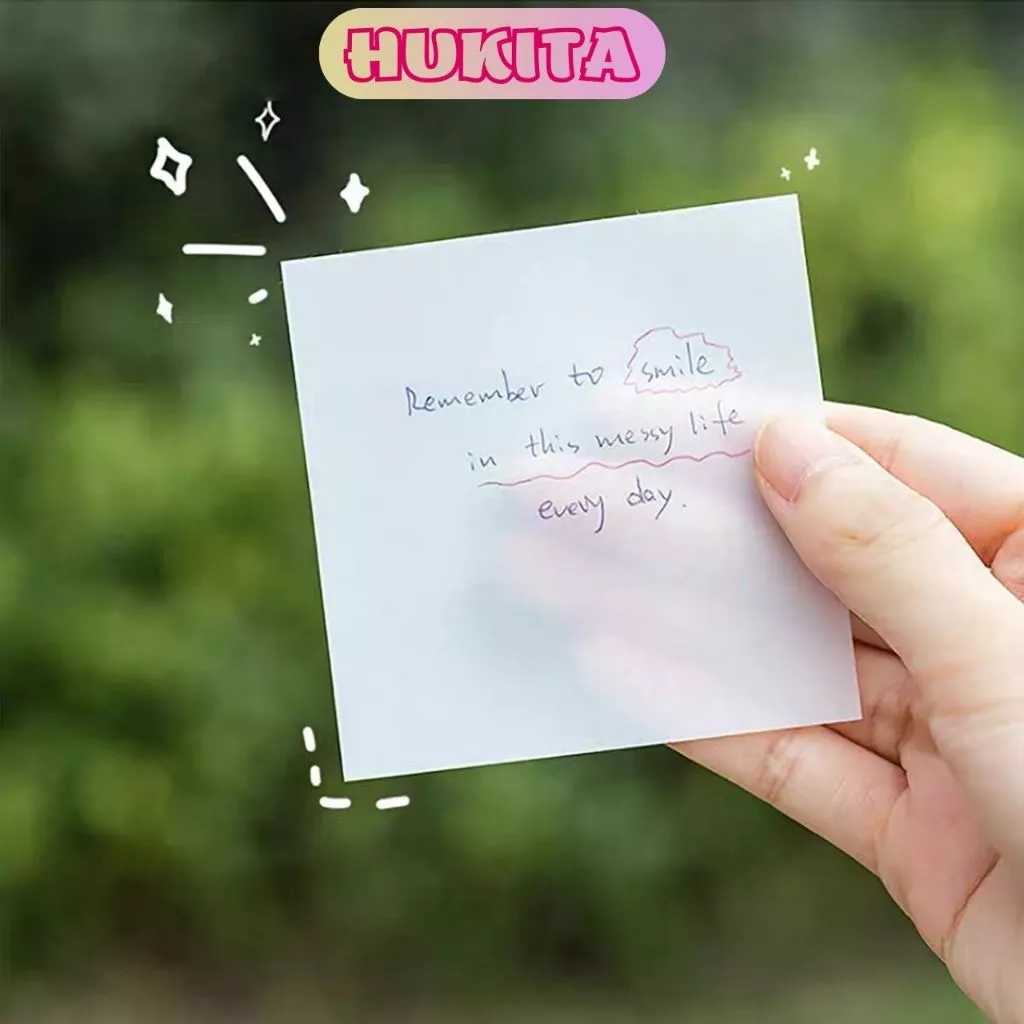 HUKITA
Remember to smile
in this messy life
every day.